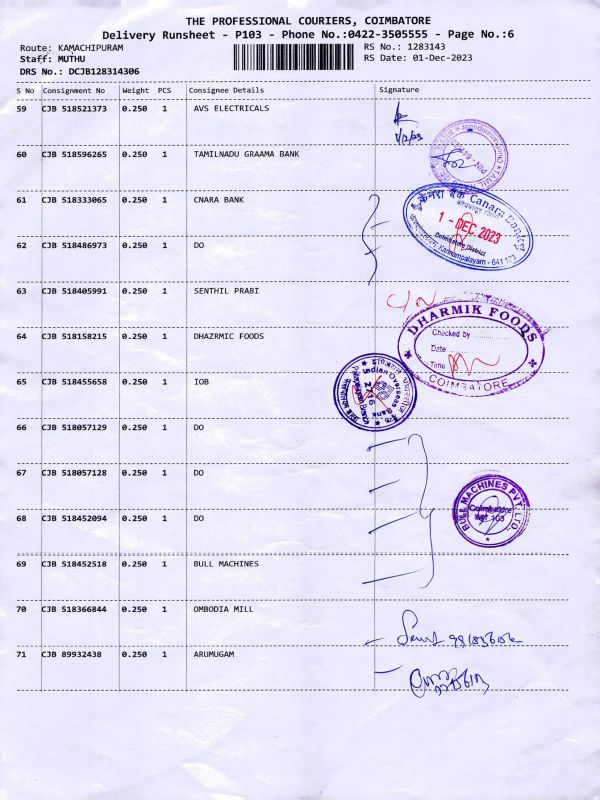 THE PROFESSIONAL COURIERS, COIMBATORE
Delivery Runsheet - P103 - Phone No.:0422-3505555 - Page No.:6
Route: KAMACHIPURAM
RS No.: 1283143
Staff: MUTHU
RS Date: 01-Dec-2023
DRS No.: DCJB128314306
S No Consignment No Weight PCS Consignee Details Signature
59 CJB 518521373 0.250 1 AVS ELECTRICALS
60 CJB 518596265 0.250 1 TAMILNADU GRAAMA BANK
61 CJB 518333065 0.250 1 CNARA BANK
केनरा बैंक Canara Bank
1 - DEC 2023
Coimbatore District
Kannampalayam - 641 103
62 CJB 518486973 0.250 1 DO
63 CJB 518405991 0.250 1 SENTHIL PRABI
C/N
64 CJB 518158215 0.250 1 DHAZRMIC FOODS
DHARMIK FOODS
Checked by
Date
Time
COIMBATORE
65 CJB 518455658 0.250 1 IOB
Indian Overseas Bank
2716
66 CJB 518057129 0.250 1 DO
67 CJB 518057128 0.250 1 DO
68 CJB 518452094 0.250 1 DO
BULL MACHINES PVT. LTD.
Coimbatore
641 103
69 CJB 518452518 0.250 1 BULL MACHINES
70 CJB 518366844 0.250 1 OMBODIA MILL
71 CJB 89932438 0.250 1 ARUMUGAM